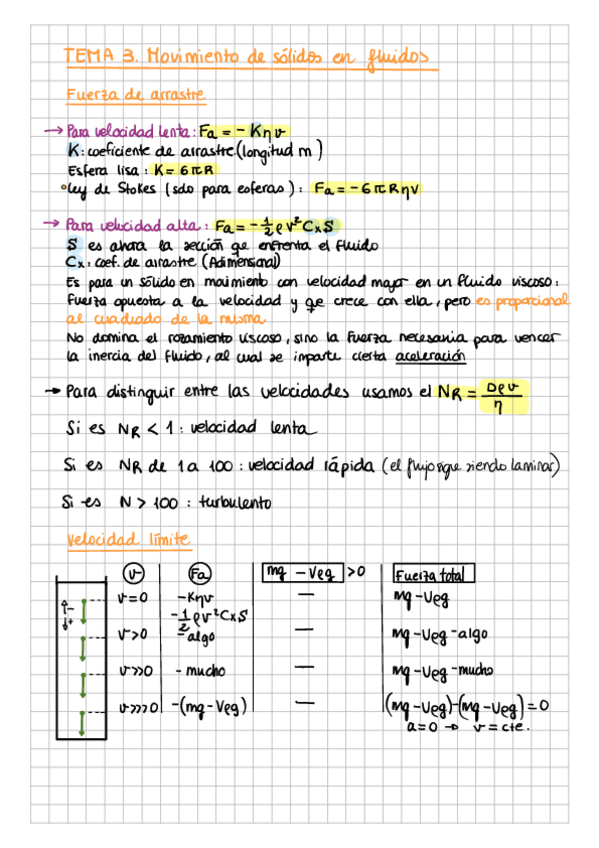 TEMA 3. Movimiento de sólidos en fluidos
Fuerza de arrastre
→ Para velocidad lenta: Fa = - Kηv
K: coeficiente de arrastre (longitud m)
Esfera lisa: K = 6πR
• Ley de Stokes (solo para esferas): Fa = -6πRηv
→ Para velocidad alta: Fa = - 1/2 ρ v² Cx S
S es ahora la sección qe enfrenta el fluido
Cx: coef. de arrastre (Adimensional)
Es para un sólido en movimiento con velocidad mayor en un fluido viscoso:
Fuerza opuesta a la velocidad y qe crece con ella, pero es proporcional
al cuadrado de la misma
No domina el rozamiento viscoso, sino la Fuerza necesaria para vencer
la inercia del fluido, al cual se imparte cierta aceleración
→ Para distinguir entre las velocidades usamos el NR = Dρv/η
Si es NR < 1: velocidad lenta
Si es NR de 1 a 100: velocidad rápida (el flujo sigue siendo laminar)
Si es N > 100: turbulento
Velocidad límite
v Fa mg - Veg >0 Fuerza total
↑- ↓+
v=0 -Kηv — mg-Veg
-1/2 ρv²CxS
v>0 -algo — mg-Veg-algo
v>>0 -mucho — mg-Veg-mucho
v>>>0 -(mg-Veg) — (mg-Veg)-(mg-Veg)=0
a=0 → v=cte.